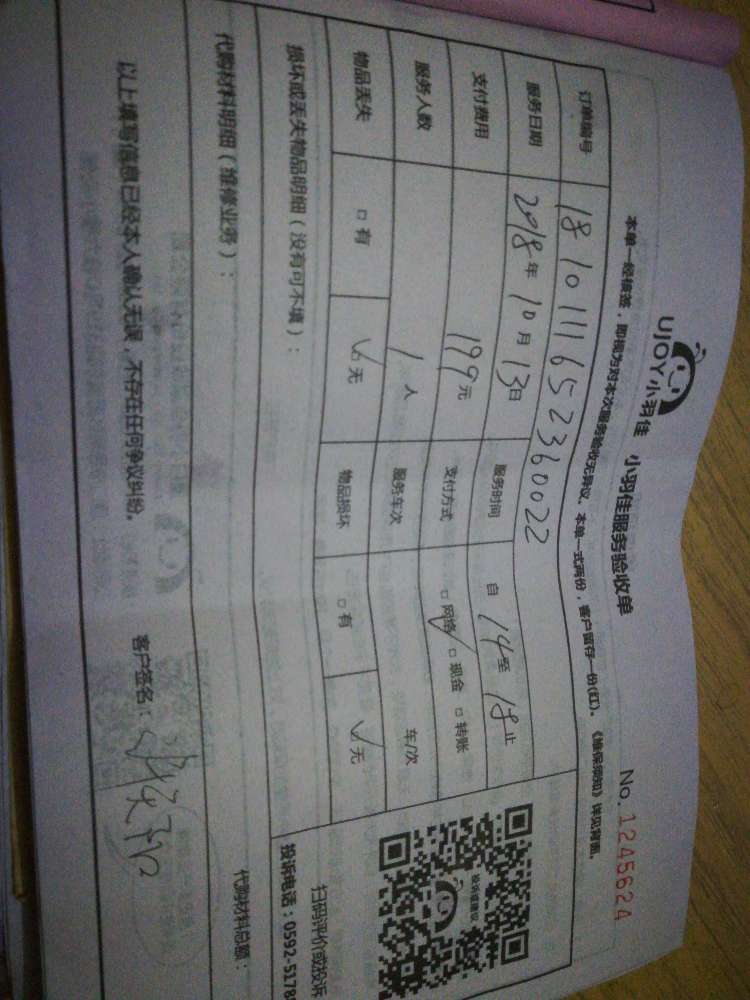 UJOY小羽佳 小羽佳服务验收单 No. 1245624
本单一经核签，即视为对本次服务验收无异议。本单一式两份，客户留存一份(红)。《维保须知》详见背面。
订单编号 1810111652360022
服务日期 2018年10月13日 服务时间 自14至18止
支付费用 199元 支付方式 □网络 □现金 □转账
服务人数 1人 服务车次 车/次
物品丢失 □有 □无 物品损坏 □有 □无
损坏或丢失物品明细（没有可不填）：
扫码评价或投诉
投诉电话：0592-5178
代购材料明细（维修业务）： 代购材料总额：
以上填写信息已经本人确认无误，不存在任何争议纠纷。 客户签名：